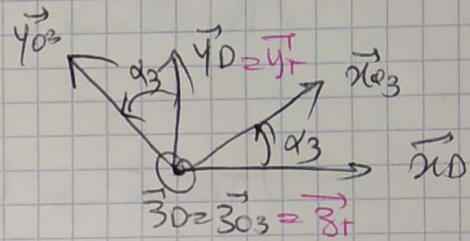 y⃗03 α3 y⃗D = y⃗r x⃗03
α3
x⃗D
z⃗D = z⃗03 = z⃗r